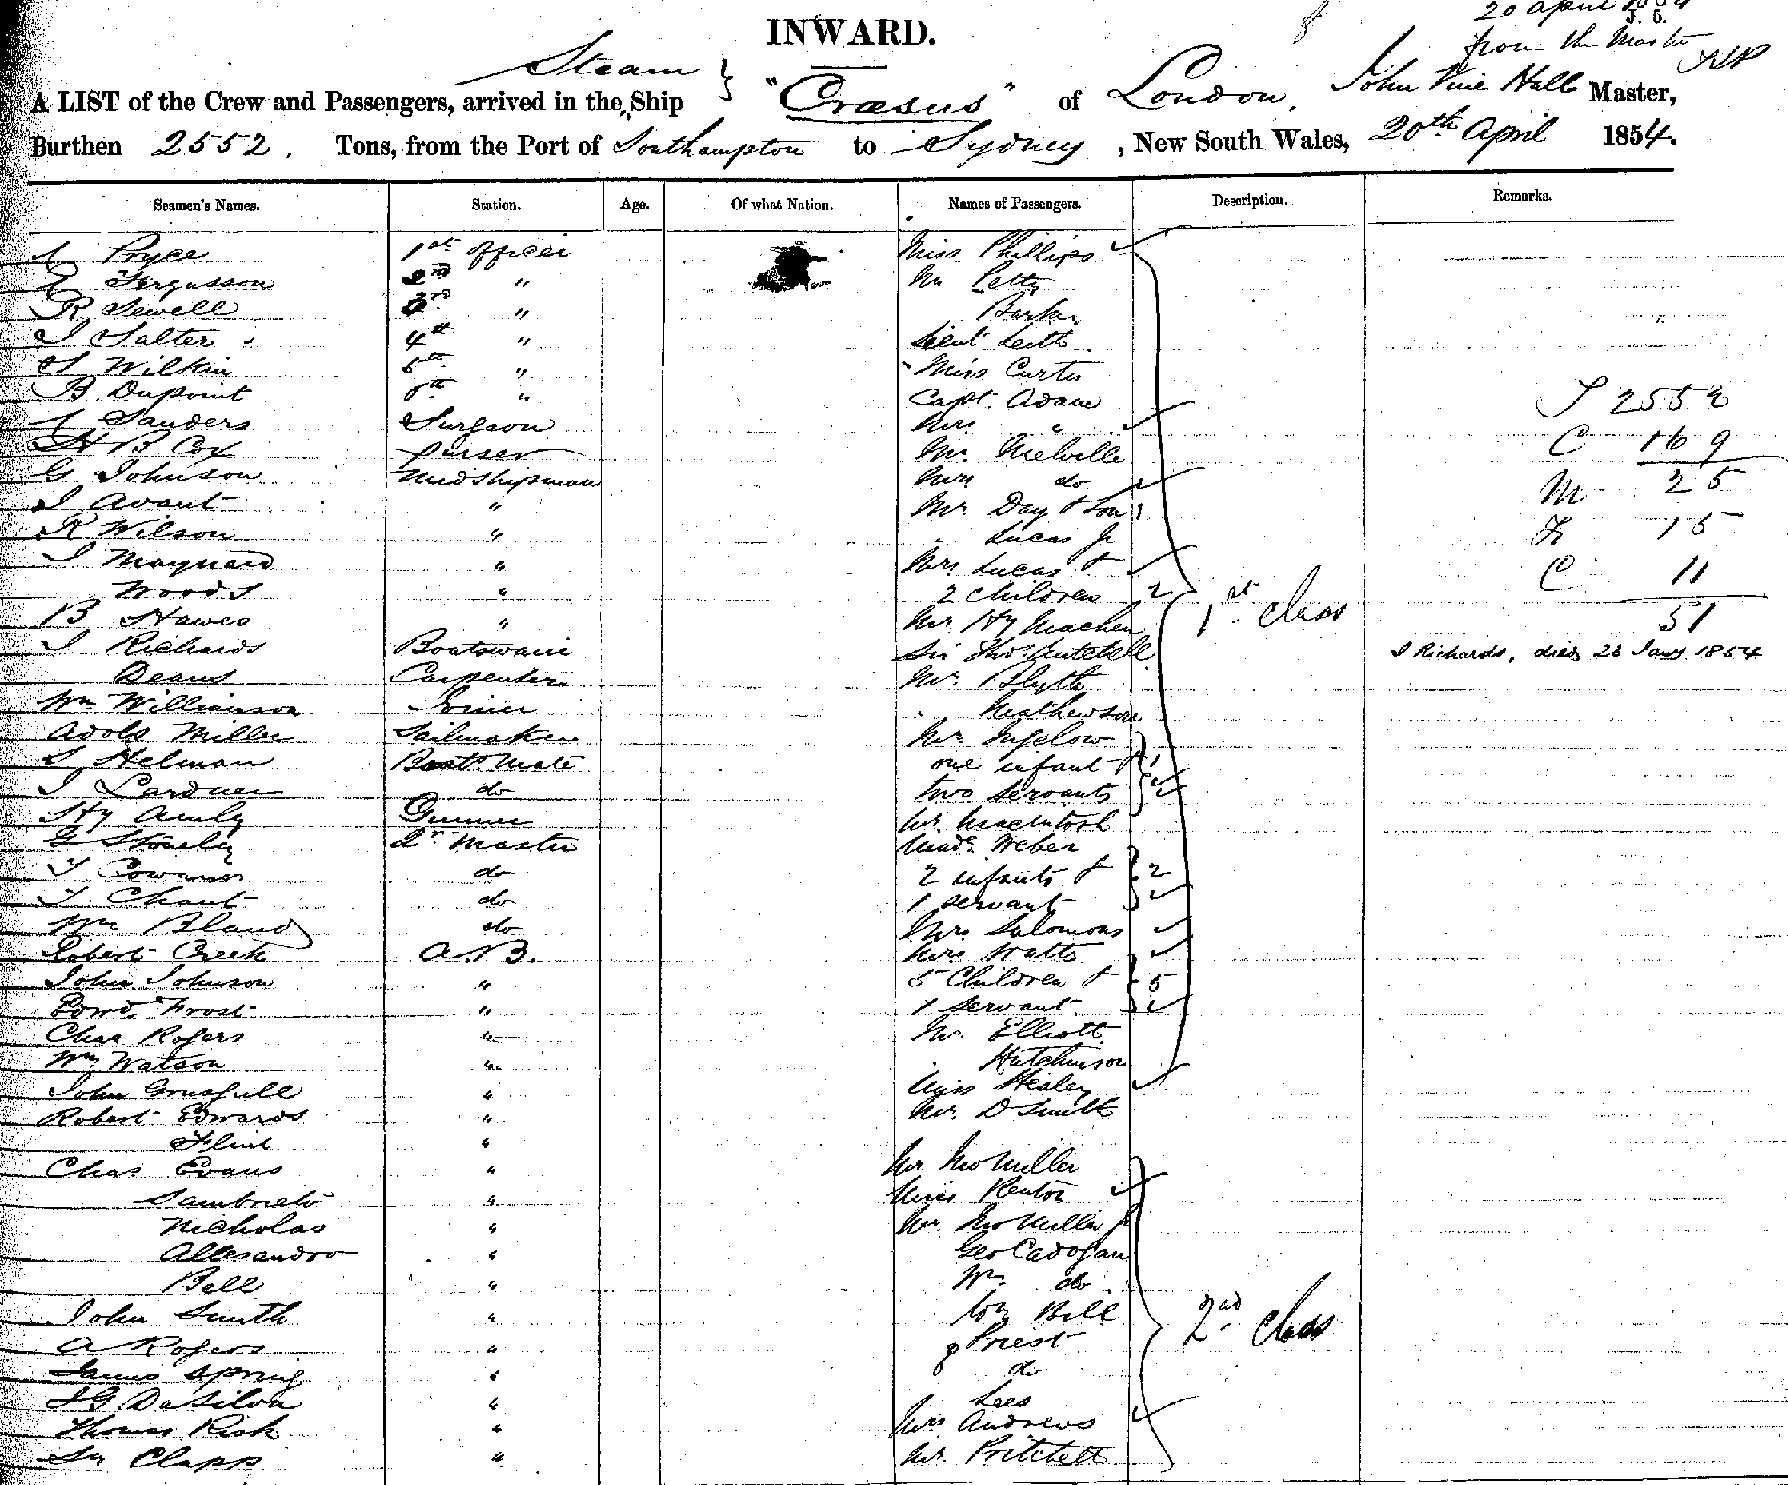 20 April 1854
J. C.
from the Master
INWARD.
Steam
A LIST of the Crew and Passengers, arrived in the Ship "Crœsus" of London, John Vine Hall Master,
Burthen 2552. Tons, from the Port of Southampton to Sydney, New South Wales, 20th April 1854.
Seamen's Names. Station. Age. Of what Nation. Names of Passengers. Description. Remarks.
Pryce 1st officer Miss Phillips
Fergusson 2nd " Mr Petty
R Sewell 3rd "
J Salter 4th " Lieut Leith
Wilkin 5th " Miss Curtis
B Dupoint 6th " Capt. Adam
Sanders Surgeon Mrs "
H B Cox Purser Mr Melville
G Johnson Midshipman Mrs do
J Avant " Mr Day & Son 1
R Wilson " Lucas Jr
J Maynard " Mrs Lucas &
Woods " 2 Children 2
B Hawes " Mr Hy Machen
J Richards Boatswain Sir Thos Mitchell
Deans Carpenter Mr Blyth
Wm Williamson Joiner Mathewson
Adols Miller Sailmaker Mr Ingelow
S Helman Boats Mate one infant & 1
J Lardner do two servants
Hy Amly Gunner Mr Macintosh
G Qr Master Madm Weber
T do 2 infants & 2
T Chant do 1 servant
Wm Bland do Mrs Salomons
Robert Creek A.B. Mrs Watts
John Johnson " 5 Children & 5
Edwd Frost " 1 servant
Chas Rogers " Mr Elliott
Wm Watson " Hutchinson
John " Miss Healey
Robert Edwards " Mr D Smith
Flint "
Chas Evans " Mr Jno Miller
" Miss Renton
Nicholas " Mr Jno Miller Jr
Allesandro " Geo Cadogan
Bell " Wm do
John Smith " Wm Bell
A Rogers " Priest
James Spring " do
J G DaSilva " Lees
Thomas Rich " Mrs Andrews
Clapp " Mr Pritchett
1st class
2nd class
T 2552
C 169
M 25
F 15
C 11
51
J Richards, died 26 Jany 1854